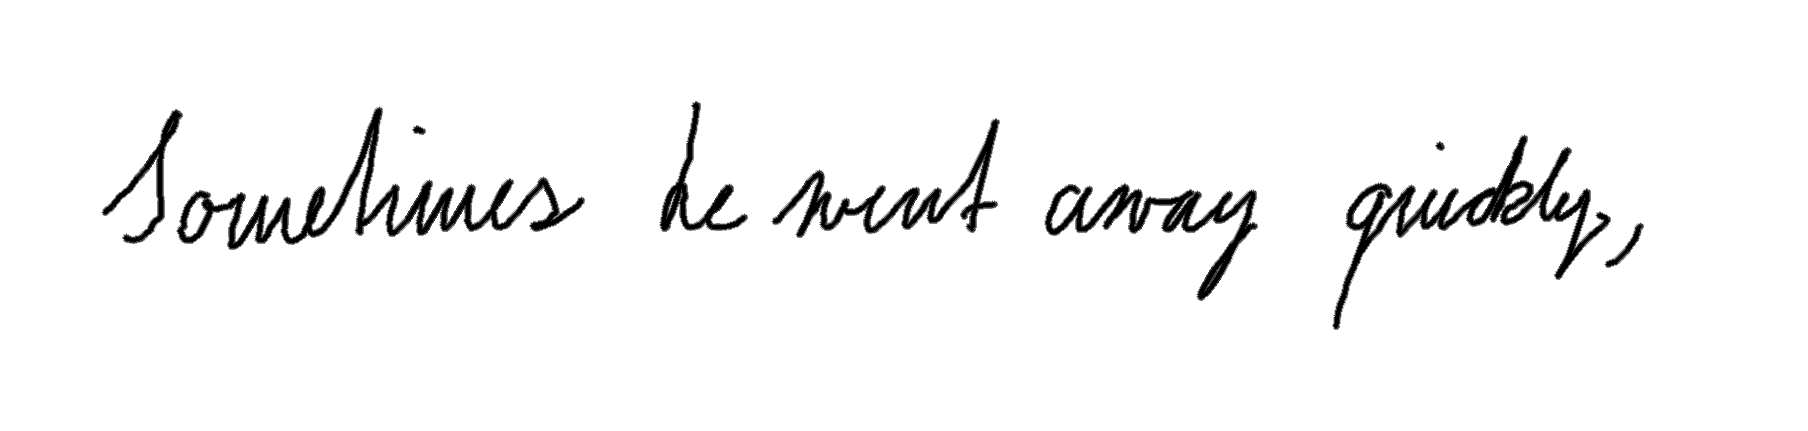 Sometimes he went away quickly,